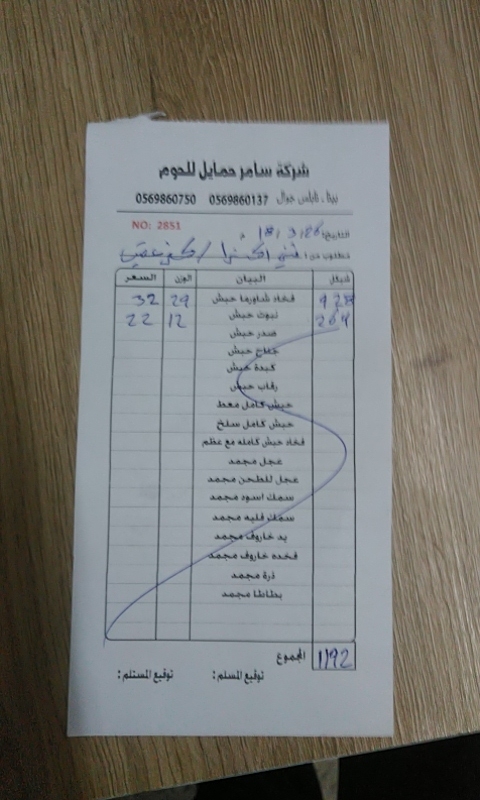 شركة سامر حمايل للحوم
بيتا . نابلس جوال 0569860137 0569860750
NO: 2851
التاريخ: 18 / 3 / 26 م
مطلوب من :
شيكل البيان الوزن السعر
928 فخاد شاورما حبش 29 32
264 نبوت حبش 12 22
صدر حبش
جناح حبش
كبدة حبش
رقاب حبش
حبش كامل معط
حبش كامل سلخ
فخاد حبش كامله مع عظم
عجل مجمد
عجل للطحن مجمد
سمك اسود مجمد
سمك فليه مجمد
يد خاروف مجمد
فخده خاروف مجمد
ذرة مجمد
بطاطا مجمد
1192 المجموع
توقيع المسلم : توقيع المستلم :